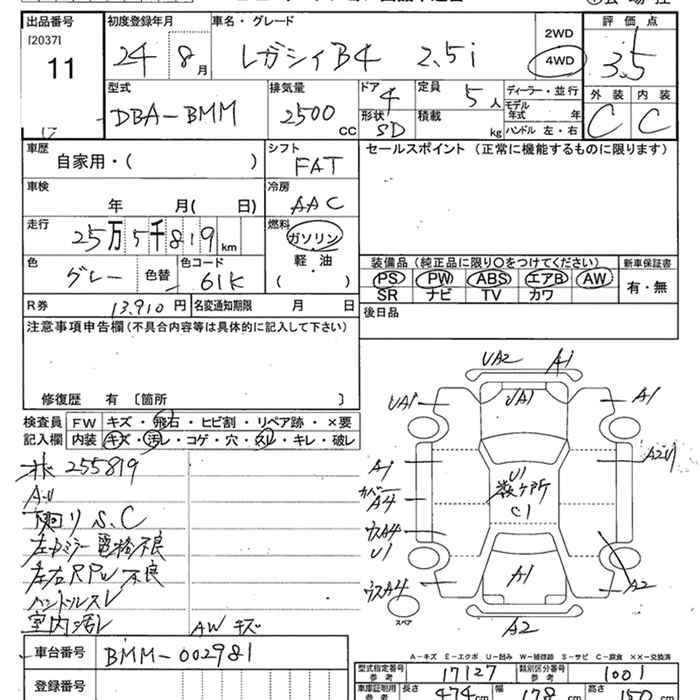 出品番号 初度登録年月 車名・グレード 評価点
[2037]
11
24 8月 レガシィB4 2.5i 2WD 4WD 3.5
型式 排気量 ドア 定員 ディーラー・並行 外装 内装
DBA-BMM 2500 CC 4 5人 モデル年式 年 C C
形状 SD 積載 kg ハンドル 左・右
車歴 シフト セールスポイント (正常に機能するものに限ります)
自家用・( ) FAT
車検 冷房
年 月( 日) AAC
走行 燃料
25万5千819km ガソリン
色 グレー 色替 色コード 61K 軽油
( )
装備品 (純正品に限り○をつけてください) 新車保証書
PS PW ABS エアB AW 有・無
SR ナビ TV カワ
R券 13,910円 名変通知期限 月 日 後日品
注意事項申告欄(不具合内容等は具体的に記入して下さい)
修復歴 有 〔箇所 〕
検査員記入欄 FW キズ・飛石・ヒビ割・リペア跡・×要
内装 キズ・汚レ・コゲ・穴・スレ・キレ・破レ
255819
下回り S.C
左ドアミラー電格不良
左右RPW不良
ハンドルスレ
室内汚レ AWキズ
UA2 A1
UA1 UA1 A1
A1 A2U1
カバーA4 U1 数ヶ所 C1
ウスA4
U1
ウスA4 A1 A2
スペア A2
A-キズ E-エクボ U-凹み W-補修跡 S-サビ C-腐食 XX-交換済
車台番号 BMM-002981
登録番号
型式指定番号 参考 17127 類別区分番号 参考 1001
車庫証明用 参考 長さ 474cm 幅 178cm 高さ 150cm